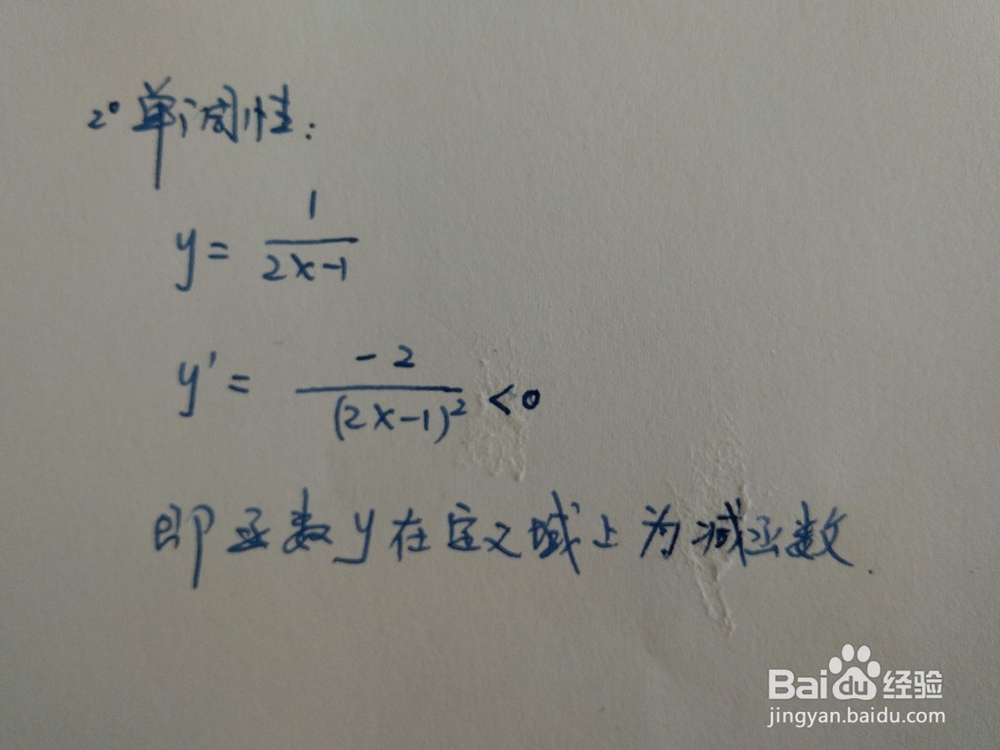 2° 单调性:
y = 1/(2x-1)
y' = -2/(2x-1)² <0
即函数y在定义域上为减函数.
Baidu经验
jingyan.baidu.com